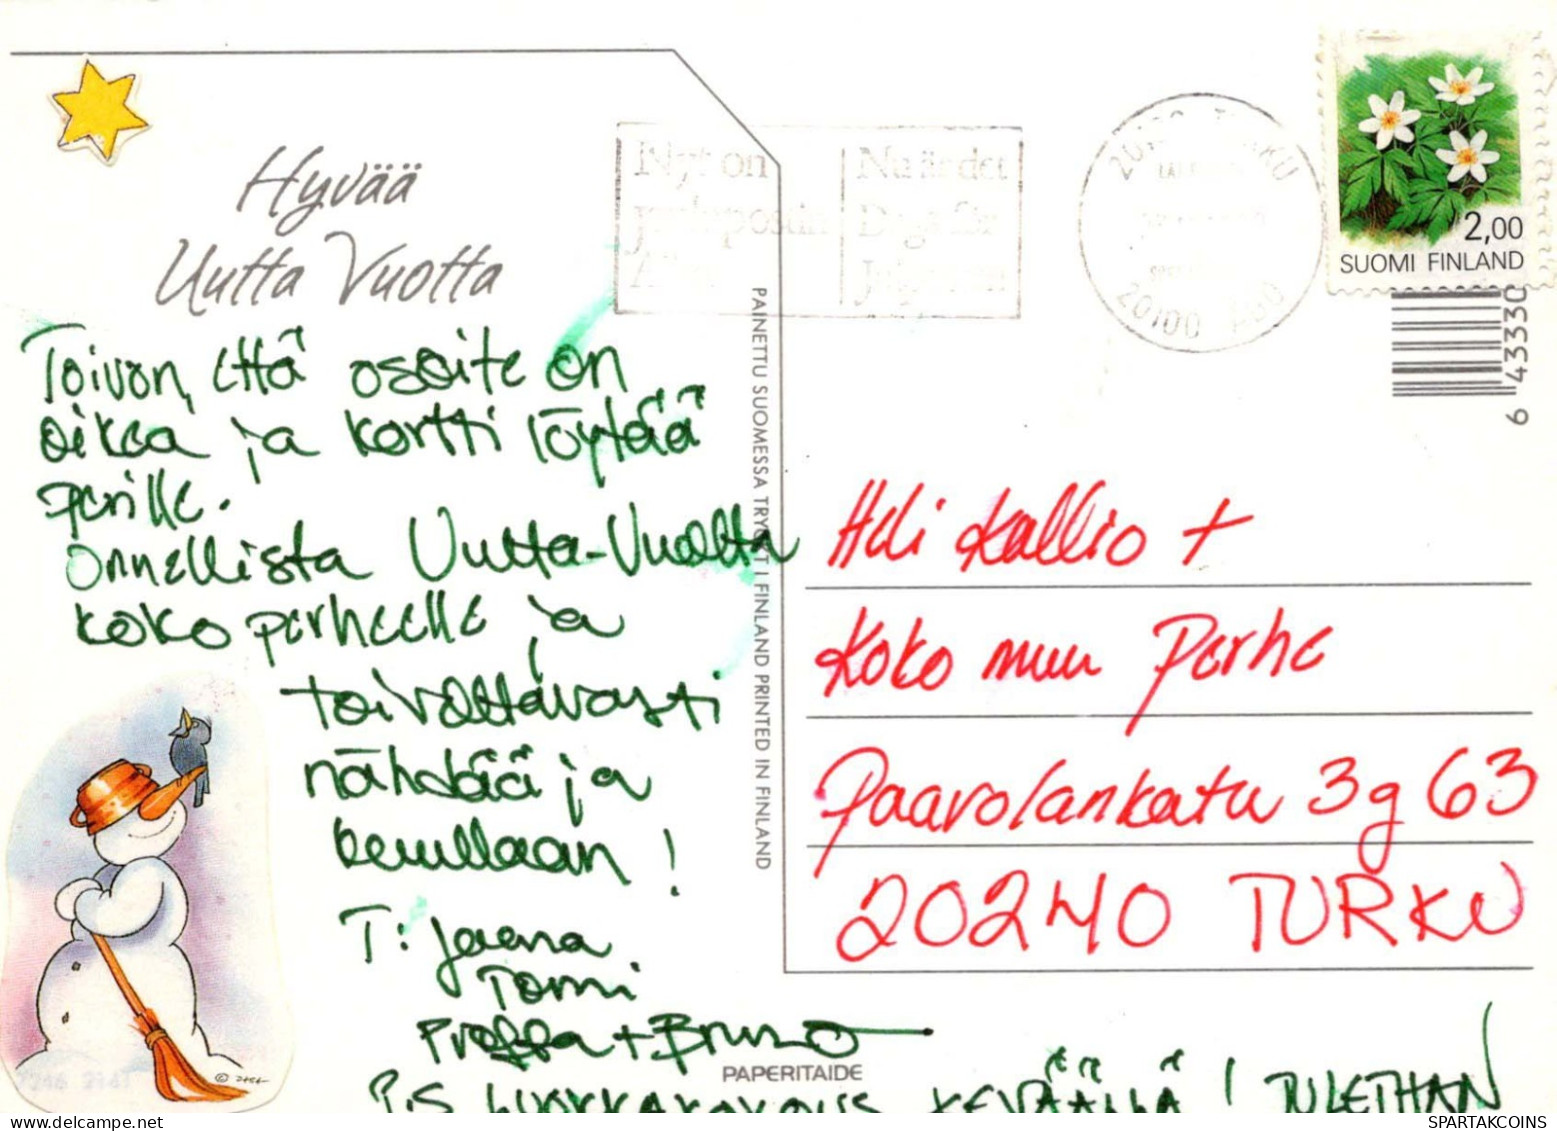 Hyvää
Uutta Vuotta
Toivon, että osoite on
oikea ja kortti löytää
perille.
Onnellista Uutta-Vuotta
koko perheelle ja
toivottavasti
nähdään ja
kuullaan!
T: Jaana
Tomi
+ Bruno
P.S LUOKKAKOKOUS KEVÄÄLLÄ! TULETHAN
PAPERITAIDE
PAINETTU SUOMESSA TRYCKT I FINLAND PRINTED IN FINLAND
Nyt on
Joulupostin
Nu är det
Dags för
Julposten
20100 TURKU
20100 ÅBO
2,00
SUOMI FINLAND
6 43330
Heli Kallio +
Koko muu Perhe
Paavolankatu 3 g 63
20240 TURKU
SPARTAKCOINS